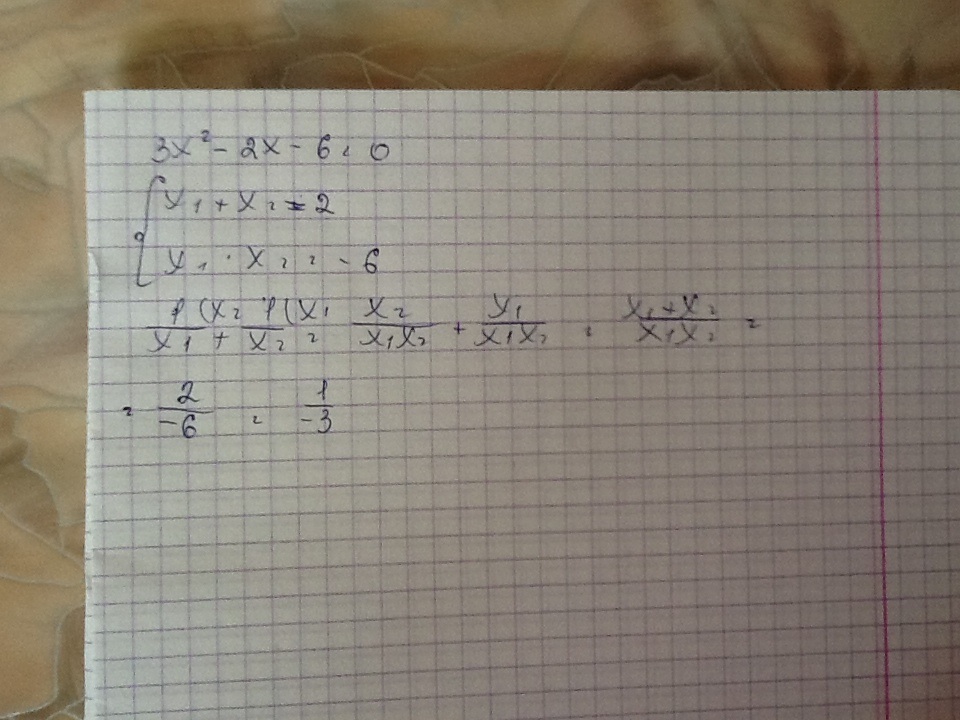 3x² - 2x - 6 = 0
x₁ + x₂ = 2
x₁ · x₂ = -6
1(x₂/x₁ + 1(x₁/x₂ = x₂/x₁x₂ + x₁/x₁x₂ = x₁+x₂/x₁x₂ =
= 2/-6 = 1/-3